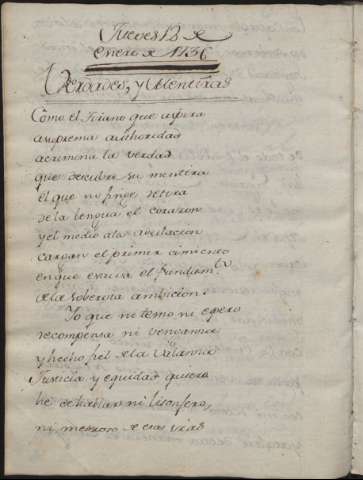 Jueves 12 de
enero de 1736
Verdades, y Mentiras
Como el Tirano que aspira
a suprema authoridad
acrimina la verdad
que descubre su mentira
el que no finje retira
de la lengua el corazon
y el medio a la
cargan el primer cimiento
en que estriva el fundamto
de la soberbia ambicion.
Yo que no temo ni espero
recompensa ni venganza
y hecho fiel de la valanza
Justicia y equidad quiero
he de hablar ni lisonjero,
ni medroso de esas iras